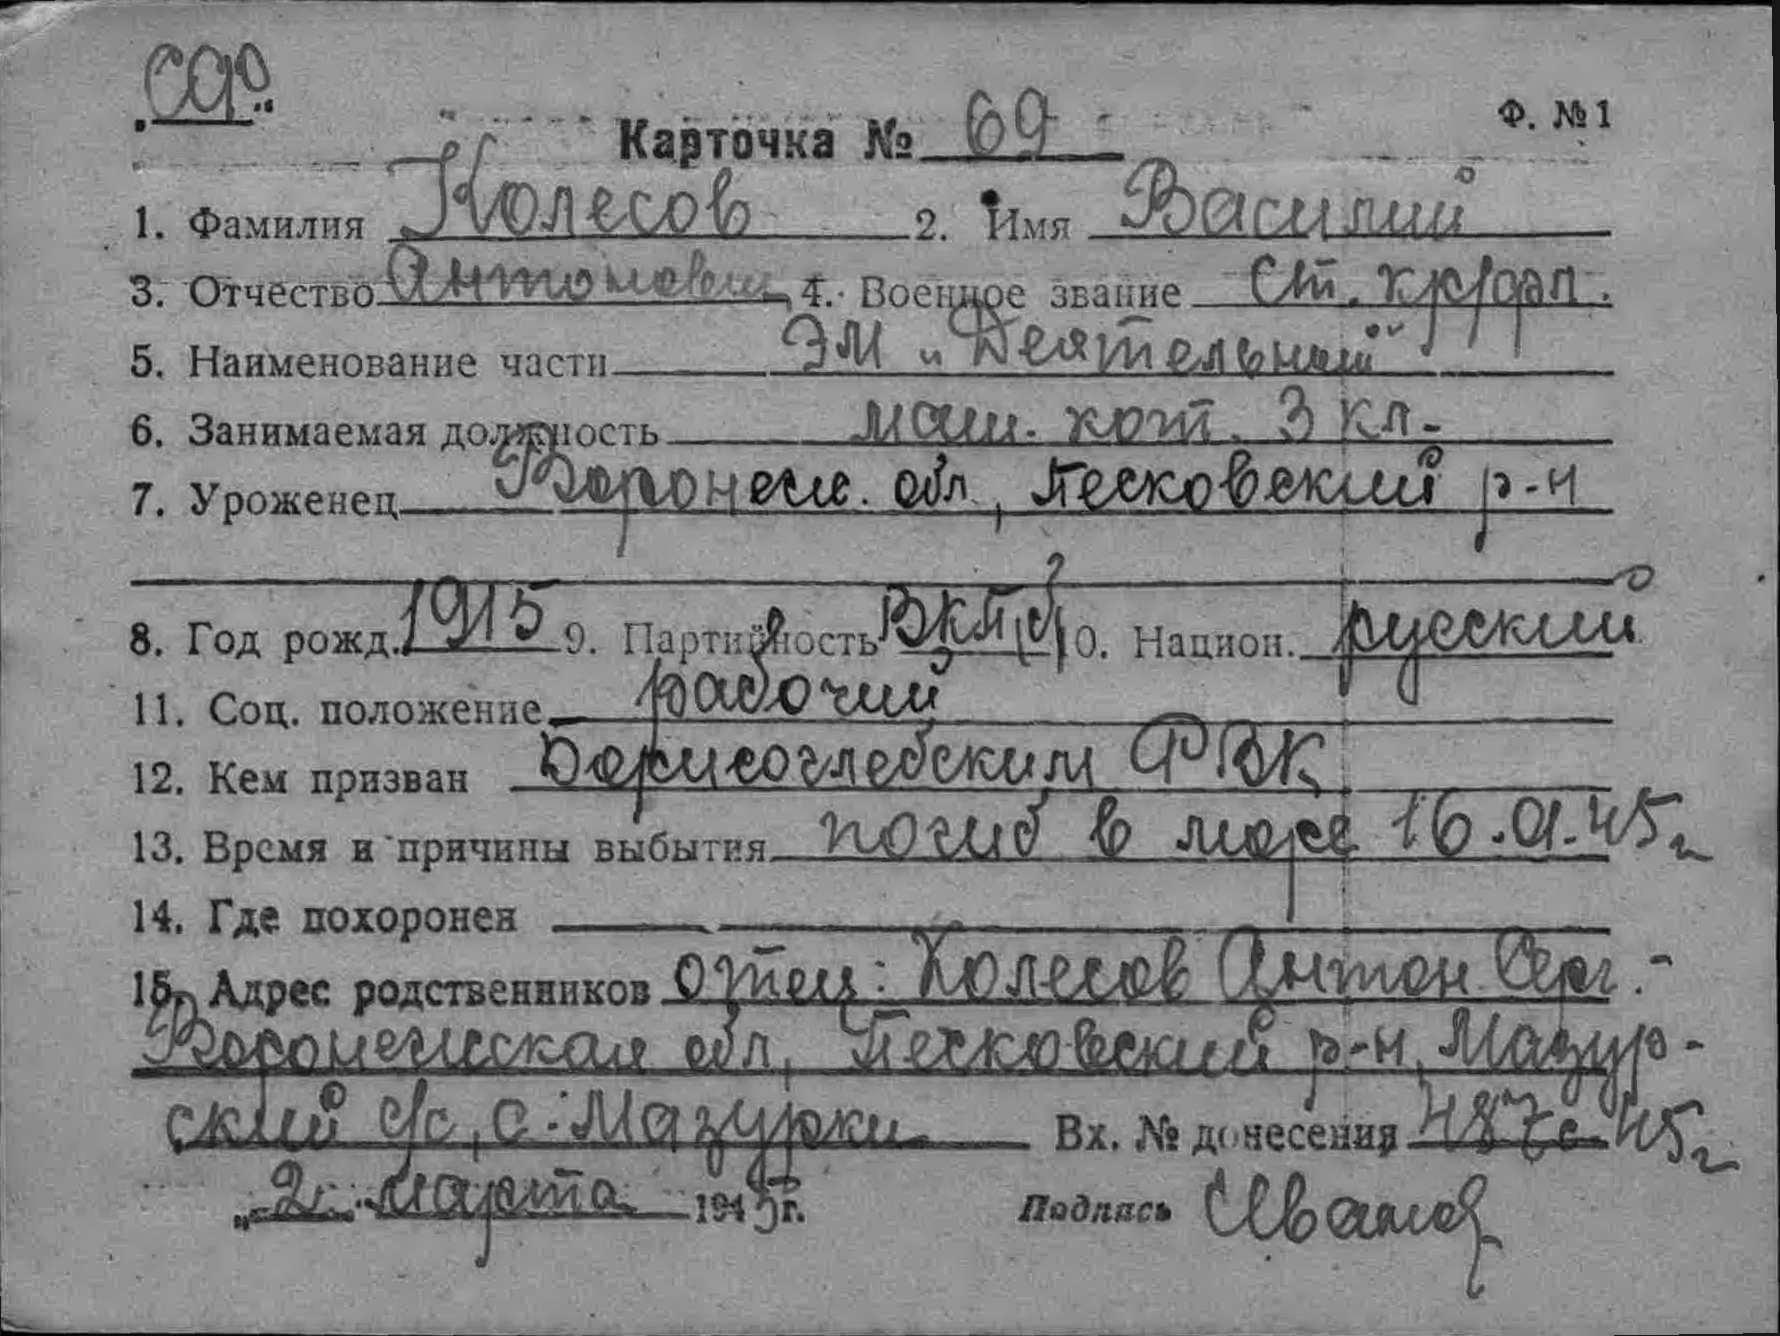 СФ
Ф. №1
Карточка № 69
1. Фамилия Колесов 2. Имя Василий
3. Отчество Антонович 4. Военное звание Ст. кр/фл.
5. Наименование части ЭМ „Деятельный"
6. Занимаемая должность маш. кот. 3 кл.
7. Уроженец Воронеж. обл, Песковский р-н
8. Год рожд. 1915 9. Партийность ВКП(б) 10. Национ. русский
11. Соц. положение рабочий
12. Кем призван Борисоглебским РВК
13. Время и причины выбытия погиб в море 16.01.45г
14. Где похоронен
15. Адрес родственников отец: Колесов Антон Серг.-
Воронежская обл, Песковский р-н, Мазур-
ский с/с, с. Мазурки Вх. № донесения 487с 45г
„2" марта 1945г. Подпись Иванов